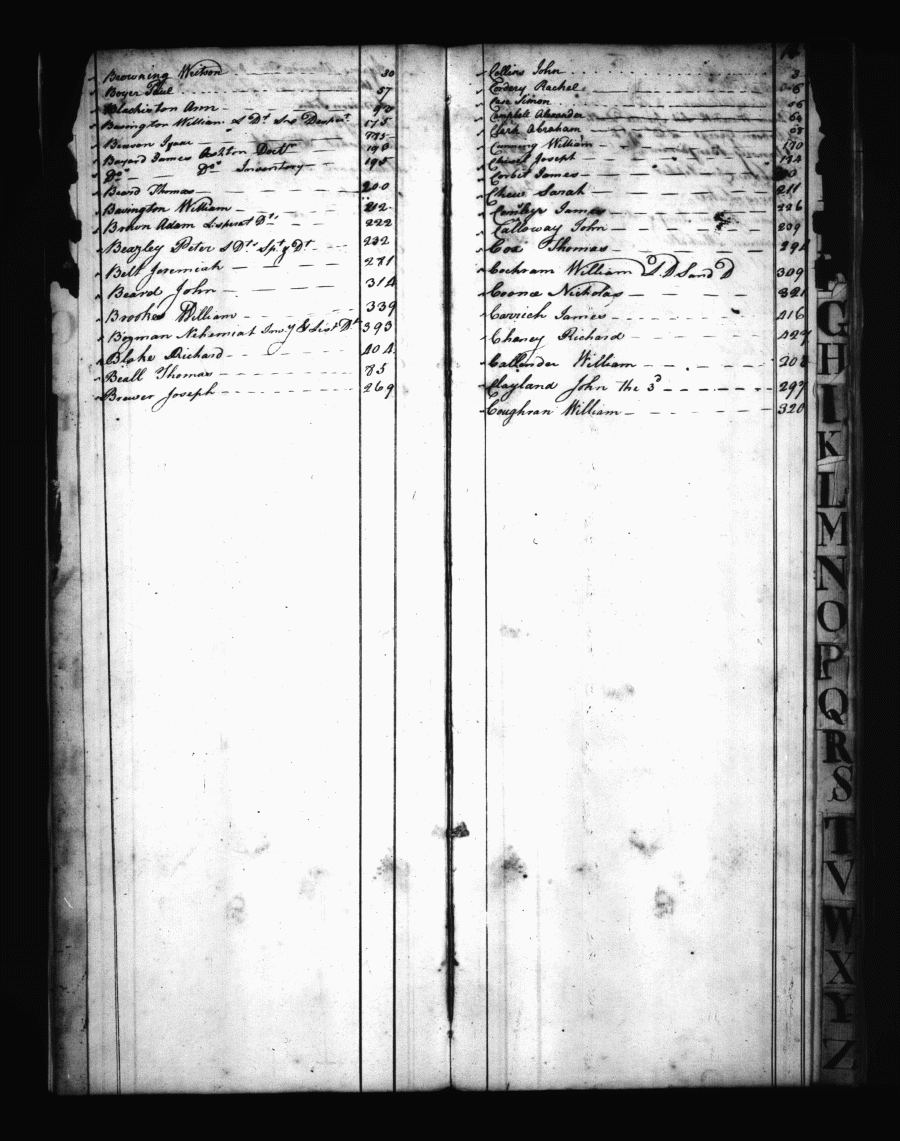 Browning Weitson 30
Boyer Paul 57
Blackiston Ann 90
Bavington William 175
Beaven Isaac
Bayard James 193
Do Do Inventory 195
Beard Thomas 200
Bavington William 212
Brown Adam 222
Beazley Peter 232
Belt Jeremiah 271
Beard John 314
Brookes William 339
Bozman Nehemiah 393
Blake Richard 404
Beall Thomas 85
Brewer Joseph 269
Collins John 3
Cordery Rachel
Case Simon 56
Campbell Alexander 60
Clark Abraham 68
Cunning William 170
Joseph
Corbit James
Chew Sarah 211
James 226
Calloway John 209
Cox Thomas 291
Cochram William 309
Coonce Nicholas 321
Carrick James 416
Chaney Richard 427
Callender William 208
Clayland John the 3d 297
Coughran William 320
G
H
I
K
L
M
N
O
P
Q
R
S
T
V
W
X
Y
Z